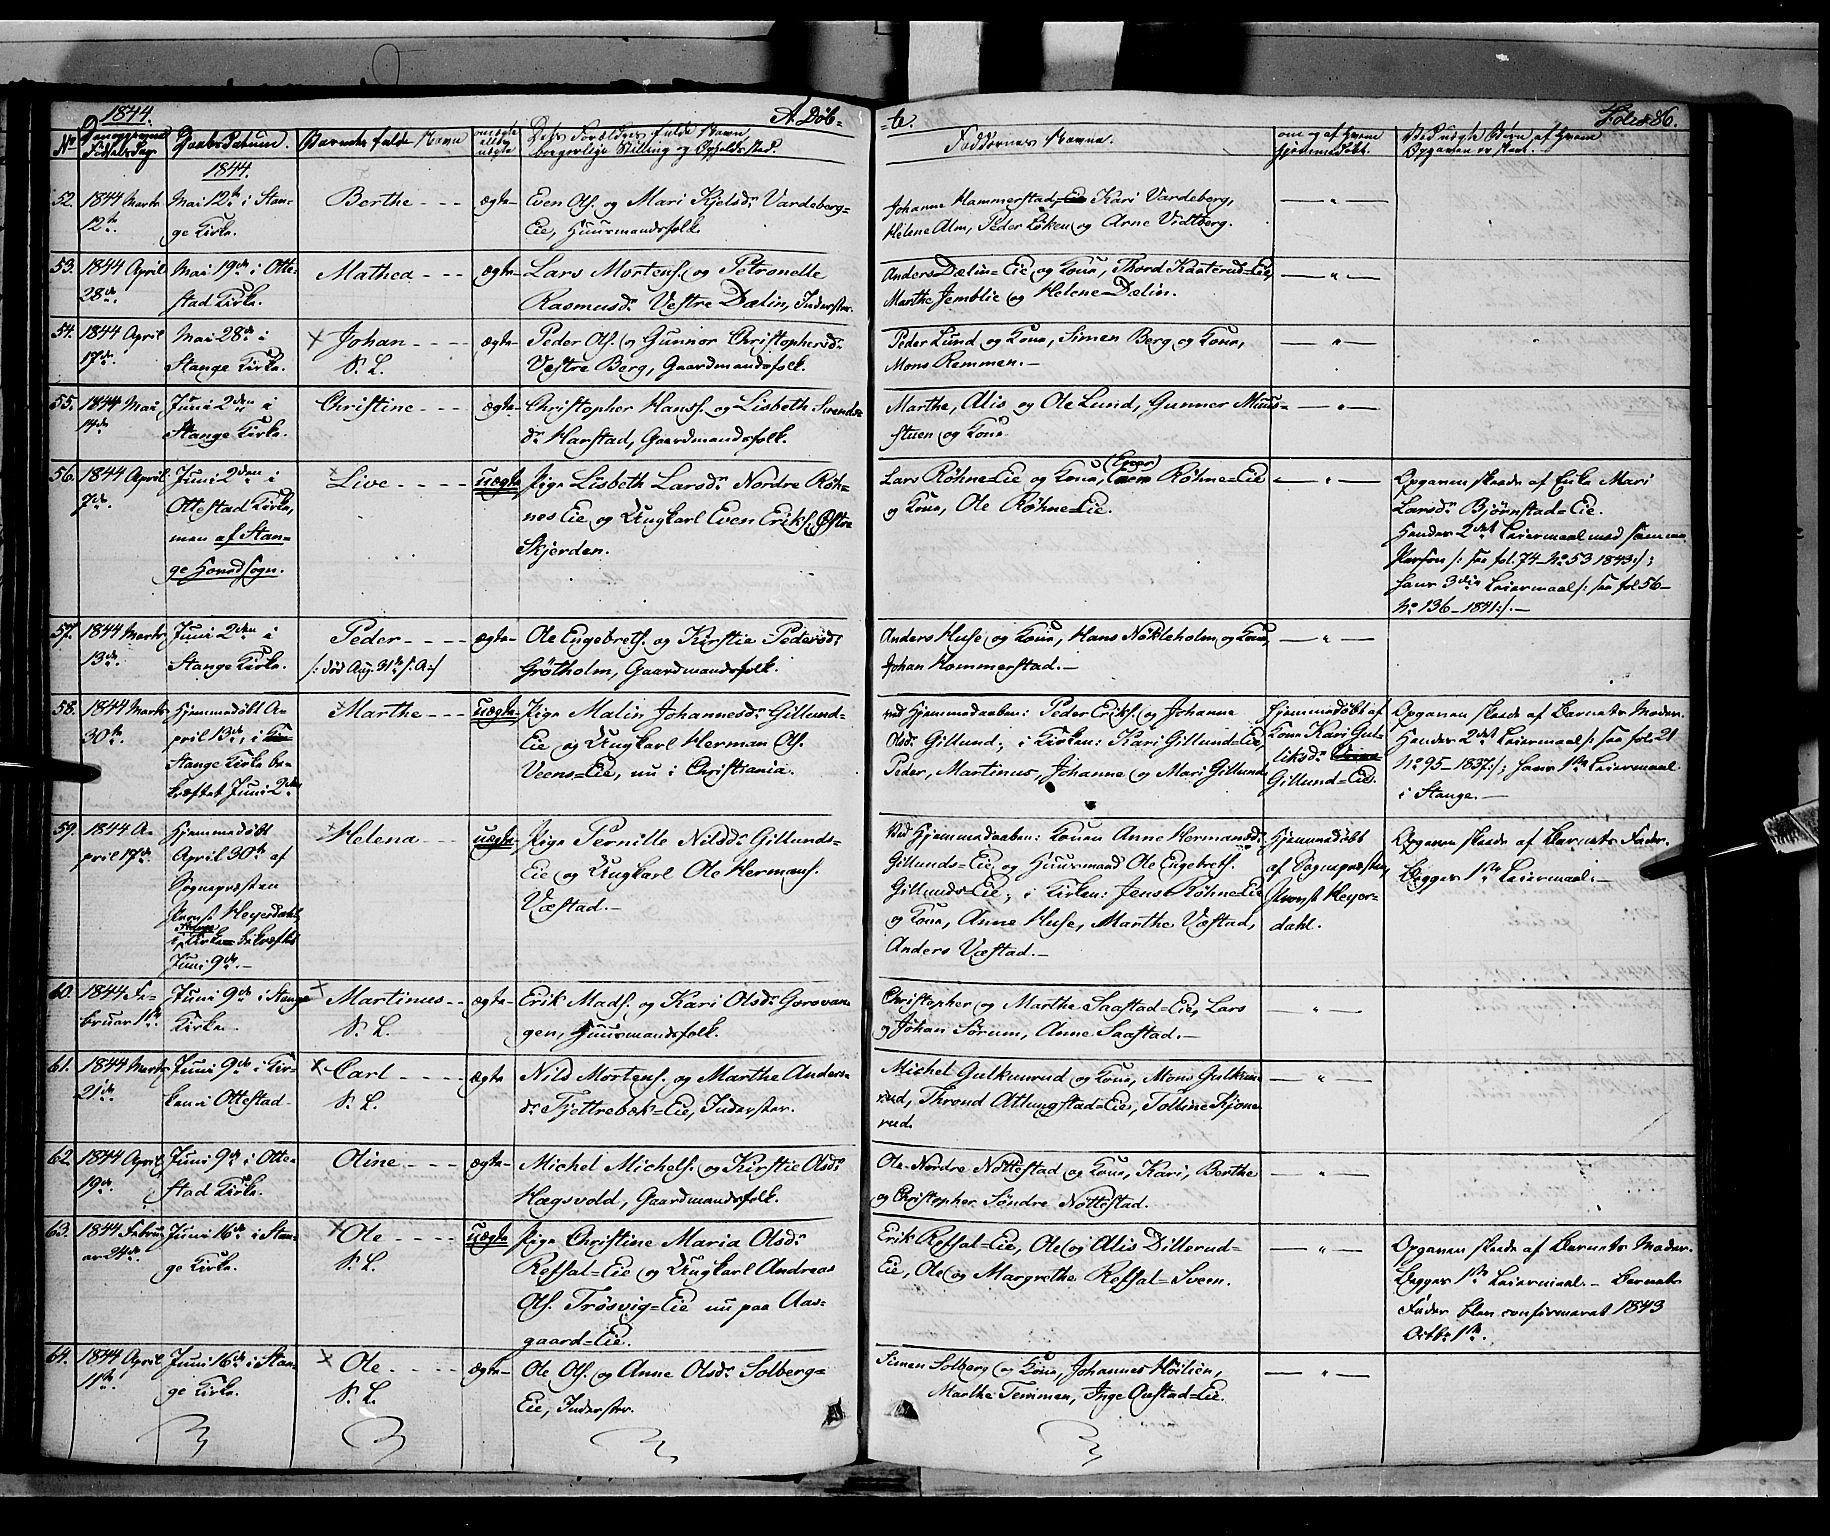 1844.
A. Døb-
te.
Folio 86.
No
Daabs-Datum.
Barnets fulde Navn
Deres Forældres fulde Navn
borgerlige Stilling og Opholdssted.
Faddernes Navne.
om og af Hvem
hjemmedøbt.
Ved uægte Børn af Hvem
Opgaven er skeet.
1844.
52.
1844 Marts
12te
Mai 12te i Stan-
ge Kirke.
Berthe
ægte
Even Ols. og Mari Kjelsdr Vardeberg-
Eie, Huusmandsfolk.
Johanne Hammerstad, Kari Vardeberg,
Helene Alm, Peder Løken og Arne Vidtberg.
53.
1844 April
28de
Mai 19de i Otte-
stad Kirke.
Mathea
ægte
Lars Mortens. og Petronelle
Rasmusdr Vestre Dælin, Inderster.
Anders Dælin-Eie og Kone, Thord Kaaterud-Eie,
Marthe Jemblie og Helene Dælin.
54.
1844 April
17de
Mai 28de i
Stange Kirke.
Johan
S. L.
ægte
Peder Ols. og Gunnor Christophersdr
Vestre Berg, Gaardmandsfolk.
Peder Lund og Kone, Simen Berg og Kone,
Mons Remmen.
55.
1844 Mai
14de
Juni 2den i
Stange Kirke.
Christine
ægte
Christopher Hans. og Lisbeth Svends-
dr Harstad, Gaardmandsfolk.
Marthe, Alis og Ole Lund, Gunner Muus-
stuen og Kone
56.
1844 April
7de
Juni 2den i
Ottestad Kirke,
men af Stan-
ge Hovedsogn.
Live
uægte
Pige Lisbeth Larsdr Nordre Røh-
nes Eie og Ungkarl Even Eriks. Østre
Skjerden.
Lars Røhne-Eie og Kone, Røhne-Eie
og Kone, Ole Røhne-Eie.
Opgaven skeede af Enke Mari
Larsdr Bjørnstad-Eie.
Hendes 2det Leiermaal med samme
Person /: see fol. 74 No 53 1843 :/;
hans 3die Leiermaal /: see fol 56
No 136 - 1841 :/.
57.
1844 Marts
13de
Juni 2den i
Stange Kirke.
Peder
/: død Aug. 31te s. A :/
ægte
Ole Engebrets. og Kirstie Pedersdr
Grøtholm, Gaardmandsfolk.
Anders Huse og Kone, Hans Nøkleholm og Kone,
Johan Hommerstad.
58.
1844 Marts
30te
Hjemmedøbt A-
pril 13de, i
Stange Kirke be-
kræftet Juni 2den
Marthe
uægte
Pige Malin Johannesdr Gillund-
Eie og Ungkarl Herman Ols.
Veens-Eie, nu i Christiania.
ved Hjemmedaaben: Peder Eriks. og Johanne
Olsdr Gillund; i Kirken: Kari Gillund-Eie,
Peder, Martinus, Johanne og Mari Gillund.
Hjemmedøbt af
Kone Kari Gul-
liksdr
Gillund-Eie.
Opgaven skeede af Barnets Moder.
Hendes 2det Leiermaal /: see fol. 21
No 95 - 1837 :/; hans 1ste Leiermaal
i Stange.
59.
1844 A-
pril 17de
Hjemmedøbt
April 30te af
Sognepræsten
Provst Heyerdahl,
i Kirke bekræftet
Juni 9de
Helena
uægte
Pige Pernille Nilsdr Gillunds-
Eie og Ungkarl Ole Hermans.
Væstad.
Ved Hjemmedaaben: Konen Anne Hermansdr
Gillunds-Eie og Huusmand Ole Engebrets.
Gillunds-Eie; i Kirken: Jens Røhne-Eie
og Kone, Anne Huse, Marthe Væstad,
Anders Væstad.
Hjemmedøbt
af Sognepræsten
Provst Heyer-
dahl.
Opgaven skeede af Barnets Fader.
Begges 1ste Leiermaal.
60.
1844 Fe-
bruar 1ste
Juni 9de i Stange
Kirke.
Martinus
S. L.
ægte
Erik Mads. og Kari Olsdr Gorovan-
gen, Huusmandsfolk.
Christopher og Marthe Saastad-Eie, Lars
og Johan Sørum, Anne Saastad.
61.
1844 Marts
21de
Juni 9de i Kir-
ken i Ottestad
Carl
S. L.
ægte
Nils Mortens. og Marthe Anders-
dr Tjettrebæk-Eie, Inderster.
Michel Gulkunrud og Kone, Mons Gulkun-
rud, Thrond Atlungstad-Eie, Tolline Kjone-
rud.
62.
1844 April
19de
Juni 9de i Otte-
stad Kirke.
Oline
ægte
Michel Michels. og Kirstie Olsdr
Hægsvold, Gaardmandsfolk.
Ole Nordre Nøttestad og Kone, Kari, Berthe
og Christopher Søndre Nøttestad.
63.
1844 Febru-
ar 24de
Juni 16de i Stan-
ge Kirke.
Ole
S. L.
uægte
Pige Christine Maria Olsdr
Refsal-Eie og Ungkarl Andreas
Ols. Trøsvig-Eie nu paa Aas-
gaard-Eie.
Erik Refsal-Eie, Ole og Alis Dillerud-
Eie, Ole og Margrethe Refsal-Sveen.
Opgaven skeede af Barnets Moder.
Begges 1ste Leiermaal. - Barnets
Fader blev confirmeret 1843
Octbr 1ste.
64.
1844 April
11te
Juni 16de i Stan-
ge Kirke.
Ole
S. L.
ægte
Ole Ols. og Anne Olsdr Solberg-
Eie, Inderster.
Simen Solberg og Kone, Johannes Høilien,
Marthe Temmen, Inge Oustad-Eie.